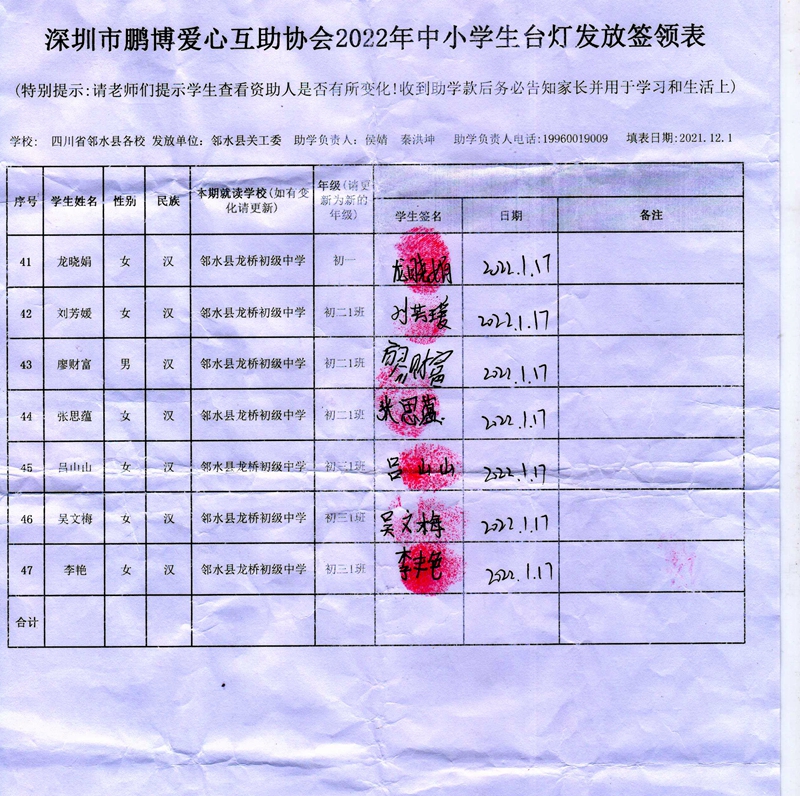 深圳市鹏博爱心互助协会2022年中小学生台灯发放签领表
(特别提示:请老师们提示学生查看资助人是否有所变化!收到助学款后务必告知家长并用于学习和生活上)
学校: 四川省邻水县各校 发放单位: 邻水县关工委 助学负责人: 侯婧 秦洪坤 助学负责人电话:19960019009 填表日期:2021.12.1
序号 学生姓名 性别 民族 本期就读学校(如有变化请更新) 年级(请更新为新的年级) 学生签名 日期 备注
41 龙晓娟 女 汉 邻水县龙桥初级中学 初一 龙晓娟 2022.1.17
42 刘芳媛 女 汉 邻水县龙桥初级中学 初二1班 刘芳媛 2022.1.17
43 廖财富 男 汉 邻水县龙桥初级中学 初二1班 廖财富 2022.1.17
44 张思蕴 女 汉 邻水县龙桥初级中学 初二1班 张思蕴 2022.1.17
45 吕山山 女 汉 邻水县龙桥初级中学 初三1班 吕山山 2022.1.17
46 吴文梅 女 汉 邻水县龙桥初级中学 初三1班 吴文梅 2022.1.17
47 李艳 女 汉 邻水县龙桥初级中学 初三1班 李艳 2022.1.17
合计